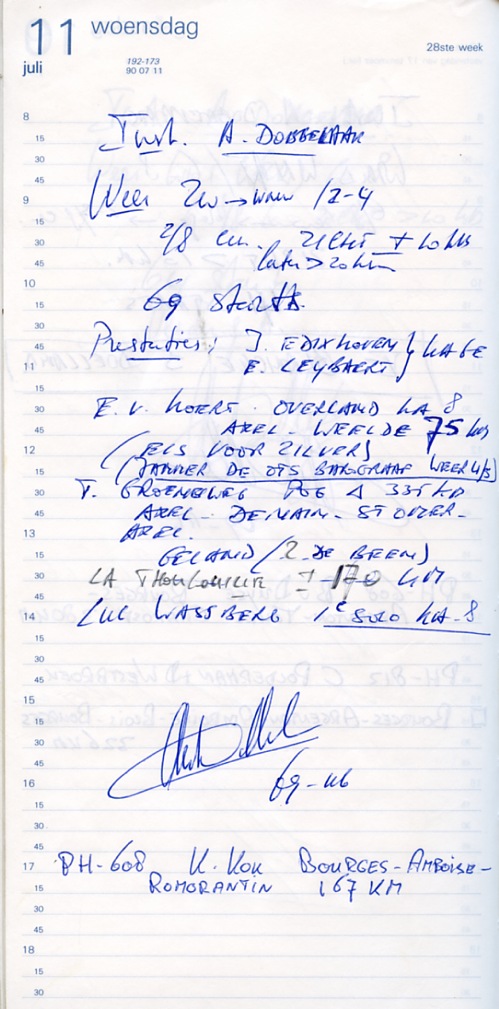 11 woensdag
juli
192-173
90 07 11
28ste week
8
15 Inst. A. DOBBELAAR
30
45
9 Weer ZW → WNW /2-4
15
30 2/8 cu. ZICHT + 10 km
45 later > 20 km
10
15 69 starts.
30
45 Prestaties: J. EDIXHOVEN } KA6E
11 E. LEYBAERT
15
30 E. V. HOERT. OVERLAND KA 8
45 AXEL - WEELDE 75 km
12 (EIS VOOR ZILVER)
15 (JAMMER DE OTS BAROGRAAF WEER
30 GROENEWEG Δ 335 KM
45 AXEL - DENAIN - ST OMER -
13 AXEL.
15 GELAND (2 DE BEEN)
30 LA ± 170 KM
45
14 LUC WASSBERG 1e SOLO KA-8
15
30
45
15
15
30
45
16 69 -
15
30
45
17 PH-608 K. KOK BOURGES - AMBOISE -
15 ROMORANTIN 167 KM
30
45
18
15
30